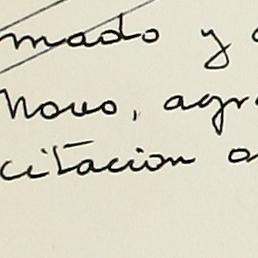 mado y
Novo, agr
citacion